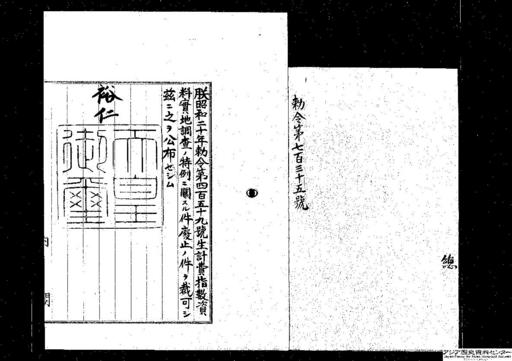 總
勅令第七百三十五號
朕昭和二十年勅令第四百五十九號生計費指數資
料實地調査ノ特例ニ關スル件廢止ノ件ヲ裁可シ
茲ニ之ヲ公布セシム
裕仁
天皇
御璽
内
閣
アジア歴史資料センター